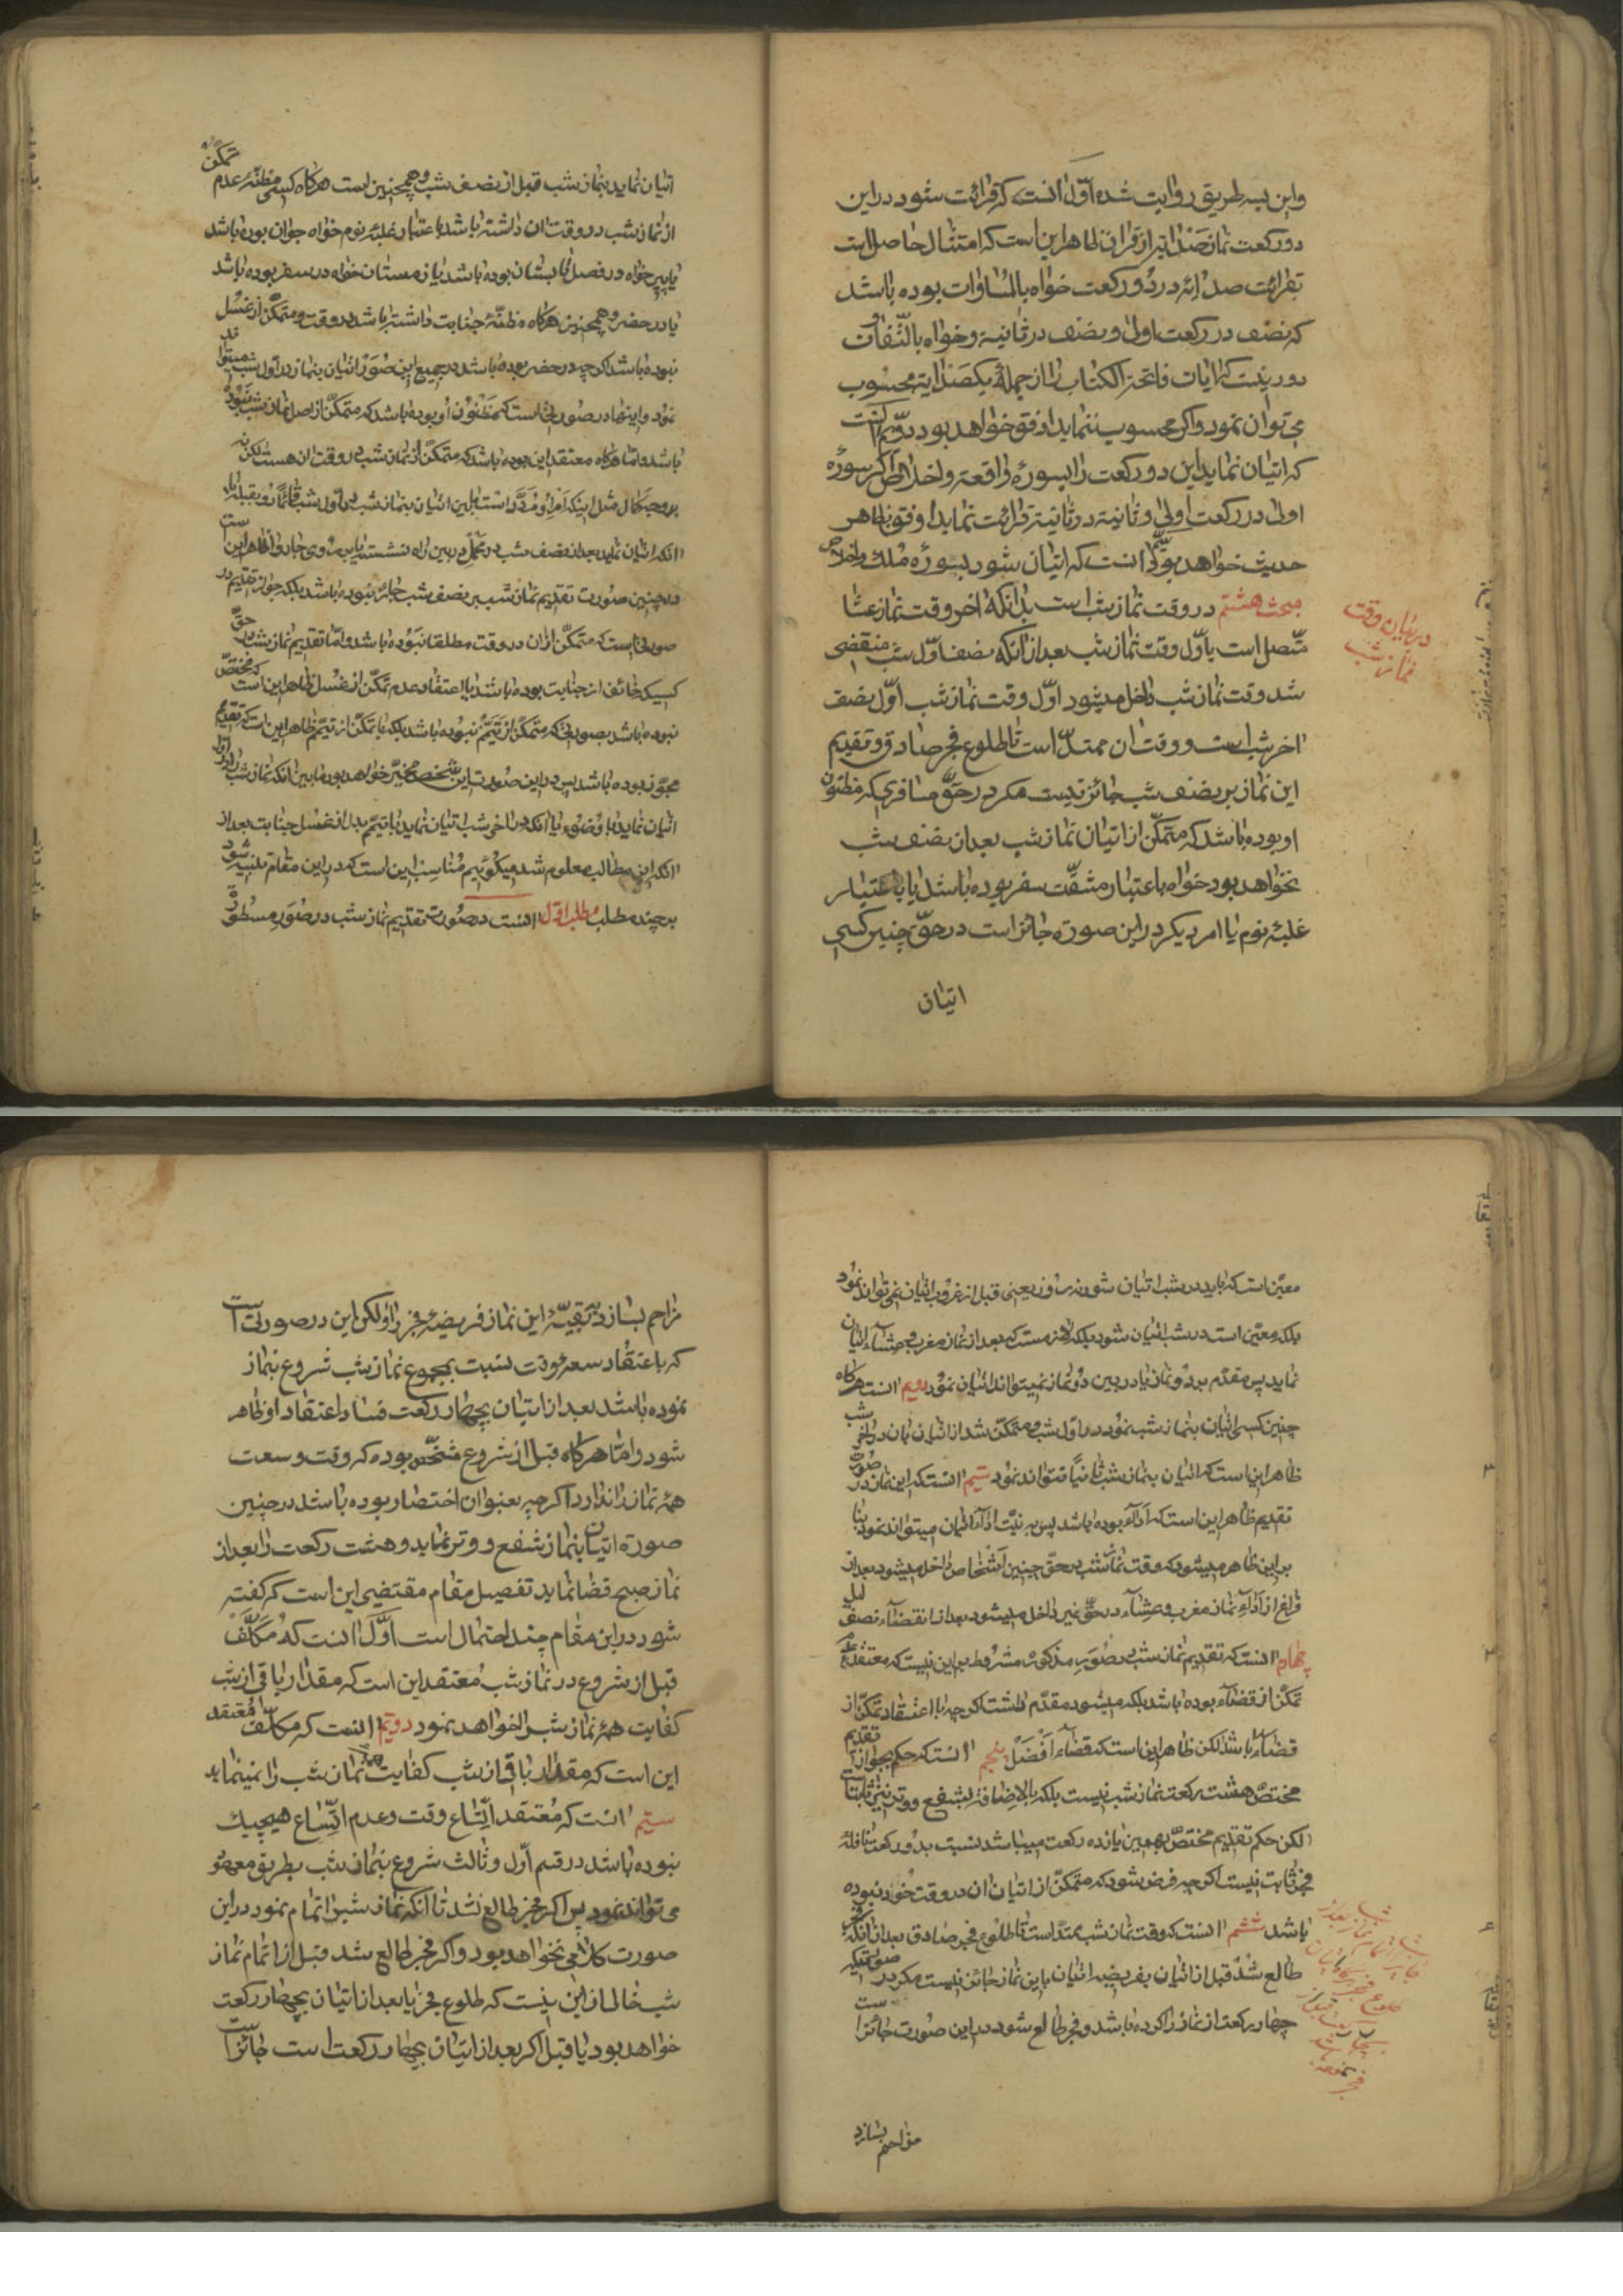 واین بسه طریق روایت شده اوّل انست که قرائت شود در این
دو رکعت نماز صد ایه از قران ظاهر این است که امتثال حاصل است
بقرائت صد ایه در دو رکعت خواه بالمساوات بوده باشد
که نصف در رکعت اولی و نصف در ثانیه و خواه بالتّفاوت
دور نیست که ایات فاتحة الکتاب را از جملهٔ یکصد ایه محسوب
می توان نمود و اکر محسوب ننماید اوفق خواهد بود دوّیم انست
که اتیان نماید این دو رکعت را بسورهٔ واقعه و اخلاص اکر سورهٔ
اولی در رکعت اولی و ثانیه در ثانیه قرائت نماید اوفق بظاهر
حدیث خواهد بود سیّم انست که اتیان شود بسورهٔ ملك و اخلاص
مبحث هشتم در وقت نماز شب است بدانکه اخر وقت نماز عشا
متّصل است باوّل وقت نماز شب بعد از انکه نصف اوّل شب منقضی
شد وقت نماز شب داخل میشود اوّل وقت نماز شب اوّل نصف
اخر شب است و وقت ان ممتدّ است تا طلوع فجر صادق و تقدیم
این نماز بر نصف شب جائز نیست مکر در حقّ مسافری که مظنون
او بوده باشد که متمکّن از اتیان نماز شب بعد از نصف شب
نخواهد بود خواه باعتبار مشقّت سفر بوده باشد یا باعتبار
غلبهٔ نوم یا امر دیکر در این صورة جائز است در حقّ چنین کسی
اتیان
در بیان وقت
نماز شب
اتیان نماید بنماز شب قبل از نصف شب و همچنین است هرکاه کسی مظنّهٔ عدم تمکّن
از نماز شب در وقت ان داشته باشد باعتبار غلبهٔ نوم خواه جوان بوده باشد
یا پیر خواه در فصل تابستان بوده باشد یا زمستان خواه در سفر بوده باشد
یا در حضر و همچنین هرکاه مظنّهٔ جنابت داشته باشد در وقت و متمکّن از غسل
نبوده باشد اکر چه در حضر بوده باشد در جمیع این صور اتیان بنماز در اوّل شب میتواند
نمود و اینها در صورتی است که مظنون او بوده باشد که متمکّن از اصل نماز شب نبوده
باشد و امّا هرکاه معتقد این بوده باشد که متمکّن از نماز شب در وقت ان هست لکن نه
بر وجه کمال مثل اینکه امر او مردّد است مابین اتیان بنماز شب در اوّل شب قائماً رو بقبله یا
انکه اتیان نماید بعد از نصف شب در محمل در بین راه نشسته یا بر روی چاروا ظاهر این است
در چنین صورت تقدیم نماز شب بر نصف شب جائز نبوده باشد بلکه جواز تقدیم در
صورتی است که متمکّن از ان در وقت مطلقا نبوده باشد و امّا تقدیم نماز شب در حقّ
کسیکه خائف از جنابت بوده باشد با اعتقاد عدم تمکّن از غسل ظاهر این است که مختصّ
نبوده باشد بصورتیکه متمکّن از تیمّم نبوده باشد بلکه با تمکّن از تیمّم ظاهر این است که تقدیم
مجوّز بوده باشد پس در این صورت این شخص مخیّر خواهد بود مابین انکه نماز شب را در اوّل
اتیان نماید با وضوء یا انکه در اخر شب اتیان نماید با تیمّم بدل از غسل جنابت بعد از
انکه این مطالب معلوم شد میکوئیم مناسب این است که در این مقام تنبیه شود
بر چند مطلب مطلب اوّل انست در صورت تقدیم نماز شب در صور مسطورة
معیّن است که باید در شب اتیان شود نه روز یعنی قبل از غروب اتیان نمی تواند نمود
بلکه معیّن است در شب اتیان شود بلکه لازمست که بعد از نماز مغرب و عشاء اتیان
نماید پس مقدّم بر دو نماز یا در بین دو نماز نمیتواند اتیان نمود دویم انست هرکاه
چنین کسی اتیان بنماز شب نمود در اوّل شب و متمکّن شد از اتیان بان در اخر شب
ظاهر این است که اتیان بنماز شب ثانیاً نتواند نمود سیّم انست که این نماز در صورت
تقدیم ظاهر این است که اداء بوده باشد پس به نیّت اداء اتیان میتواند نمود بنا
بر این ظاهر میشود که وقت نماز شب در حقّ چنین اشخاص داخل میشود بعد از
فراغ از اداء نماز مغرب و عشاء و در حقّ غیر داخل میشود بعد از انقضاء نصف لیل
چهارم انست که تقدیم نماز شب در صور مذکوره مشروط بر این نیست که معتقد عدم
تمکّن از قضاء بوده باشد بلکه میشود مقدّم داشت اکر چه با اعتقاد تمکّن از
قضاء باشد لکن ظاهر این است که قضاء افضل پنجم انست که حکم بجواز تقدیم
مختصّ هشت رکعت نماز شب نیست بلکه بالاضافه بشفع و وتر نیز ثابت است
لکن حکم تقدیم مختصّ بهمین یازده رکعت میباشد نسبت بدو رکعت نافلهٔ
فجر ثابت نیست اکر چه فرض شود که متمکّن از اتیان ان در وقت خود نبوده
باشد ششم انست که وقت نماز شب ممتدّ است تا طلوع فجر صادق بعد از انکه فجر
طالع شد قبل از اتیان بفریضه اتیان باین نماز جائز نیست مکر در صورتیکه
چهار رکعت از نماز را کرده باشد و فجر طالع شود در این صورت جائز است
مزاحم بسازد
مزاحم بسازد به بقیّهٔ این نماز فریضهٔ فجر را و لکن این در صورتی است
که باعتقاد سعهٔ وقت نسبت بمجموع نماز شب شروع بنماز
نموده باشد بعد از اتیان بچهار رکعت فساد اعتقاد او ظاهر
شود و امّا هرکاه قبل از شروع مشخّص بوده که وقت وسعت
همه نماز را ندارد اکر چه بعنوان اختصار بوده باشد در چنین
صورة اتیان بنماز شفع و وتر نماید و هشت رکعت را بعد از
نماز صبح قضا نماید تفصیل مقام مقتضی این است که کفته
شود در این مقام چند احتمال است اوّل انست که مکلّف
قبل از شروع در نماز شب معتقد این است که مقدار باقی از شب
کفایت همهٔ نماز شب را خواهد نمود دویّم انست که مکلّف معتقد
این است که مقدار باقی از شب کفایت همه نماز شب را نمینماید
سیّم انست که معتقد اتّساع وقت و عدم اتّساع هیچیك
نبوده باشد در قسم اوّل و ثالث شروع بنماز شب بطریق معهود
می تواند نمود پس اکر فجر طالع نشد تا انکه نماز شب را تمام نمود در این
صورت کلامی نخواهد بود و اکر فجر طالع شد قبل از اتمام نماز
شب خالی از این نیست که طلوع فجر یا بعد از اتیان بچهار رکعت
خواهد بود یا قبل اکر بعد از اتیان بچهار رکعت است جائز است